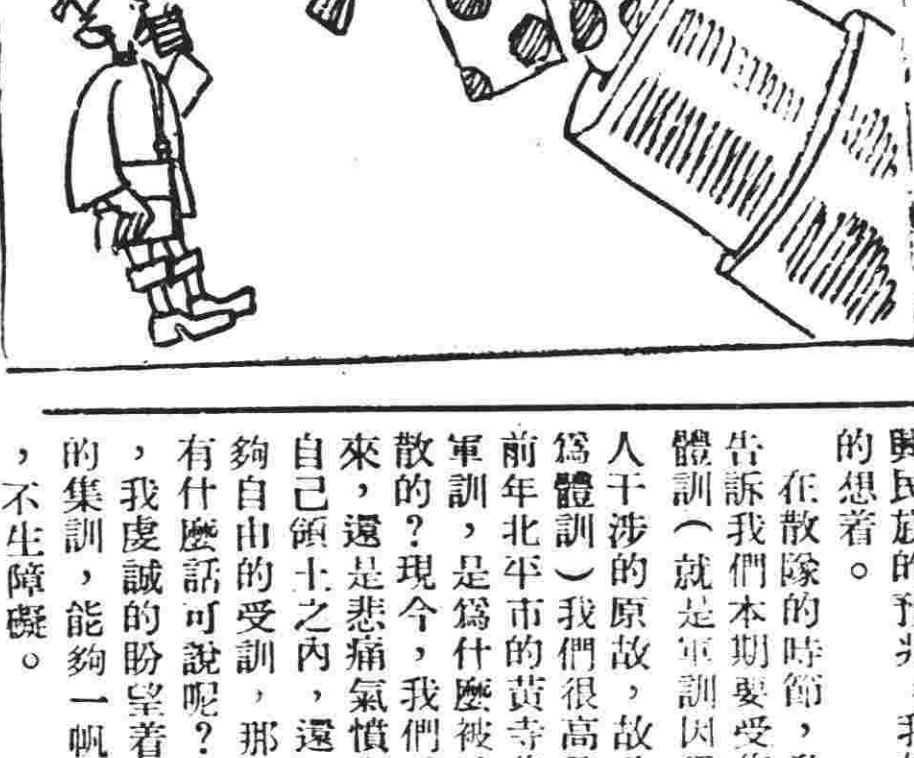 興民族的預兆，我
的想着。
在散隊的時節，
告訴我們本期要受
體訓（就是軍訓因
人干涉的原故，故
爲體訓）我們很高
前年北平市的黄寺
軍訓，是爲什麼被
散的？現今，我們
來，還是悲痛氣憤
自己領土之內，還
夠自由的受訓，那
有什麼話可說呢？
，我虔誠的盼望着
的集訓，能夠一帆
，不生障礙。